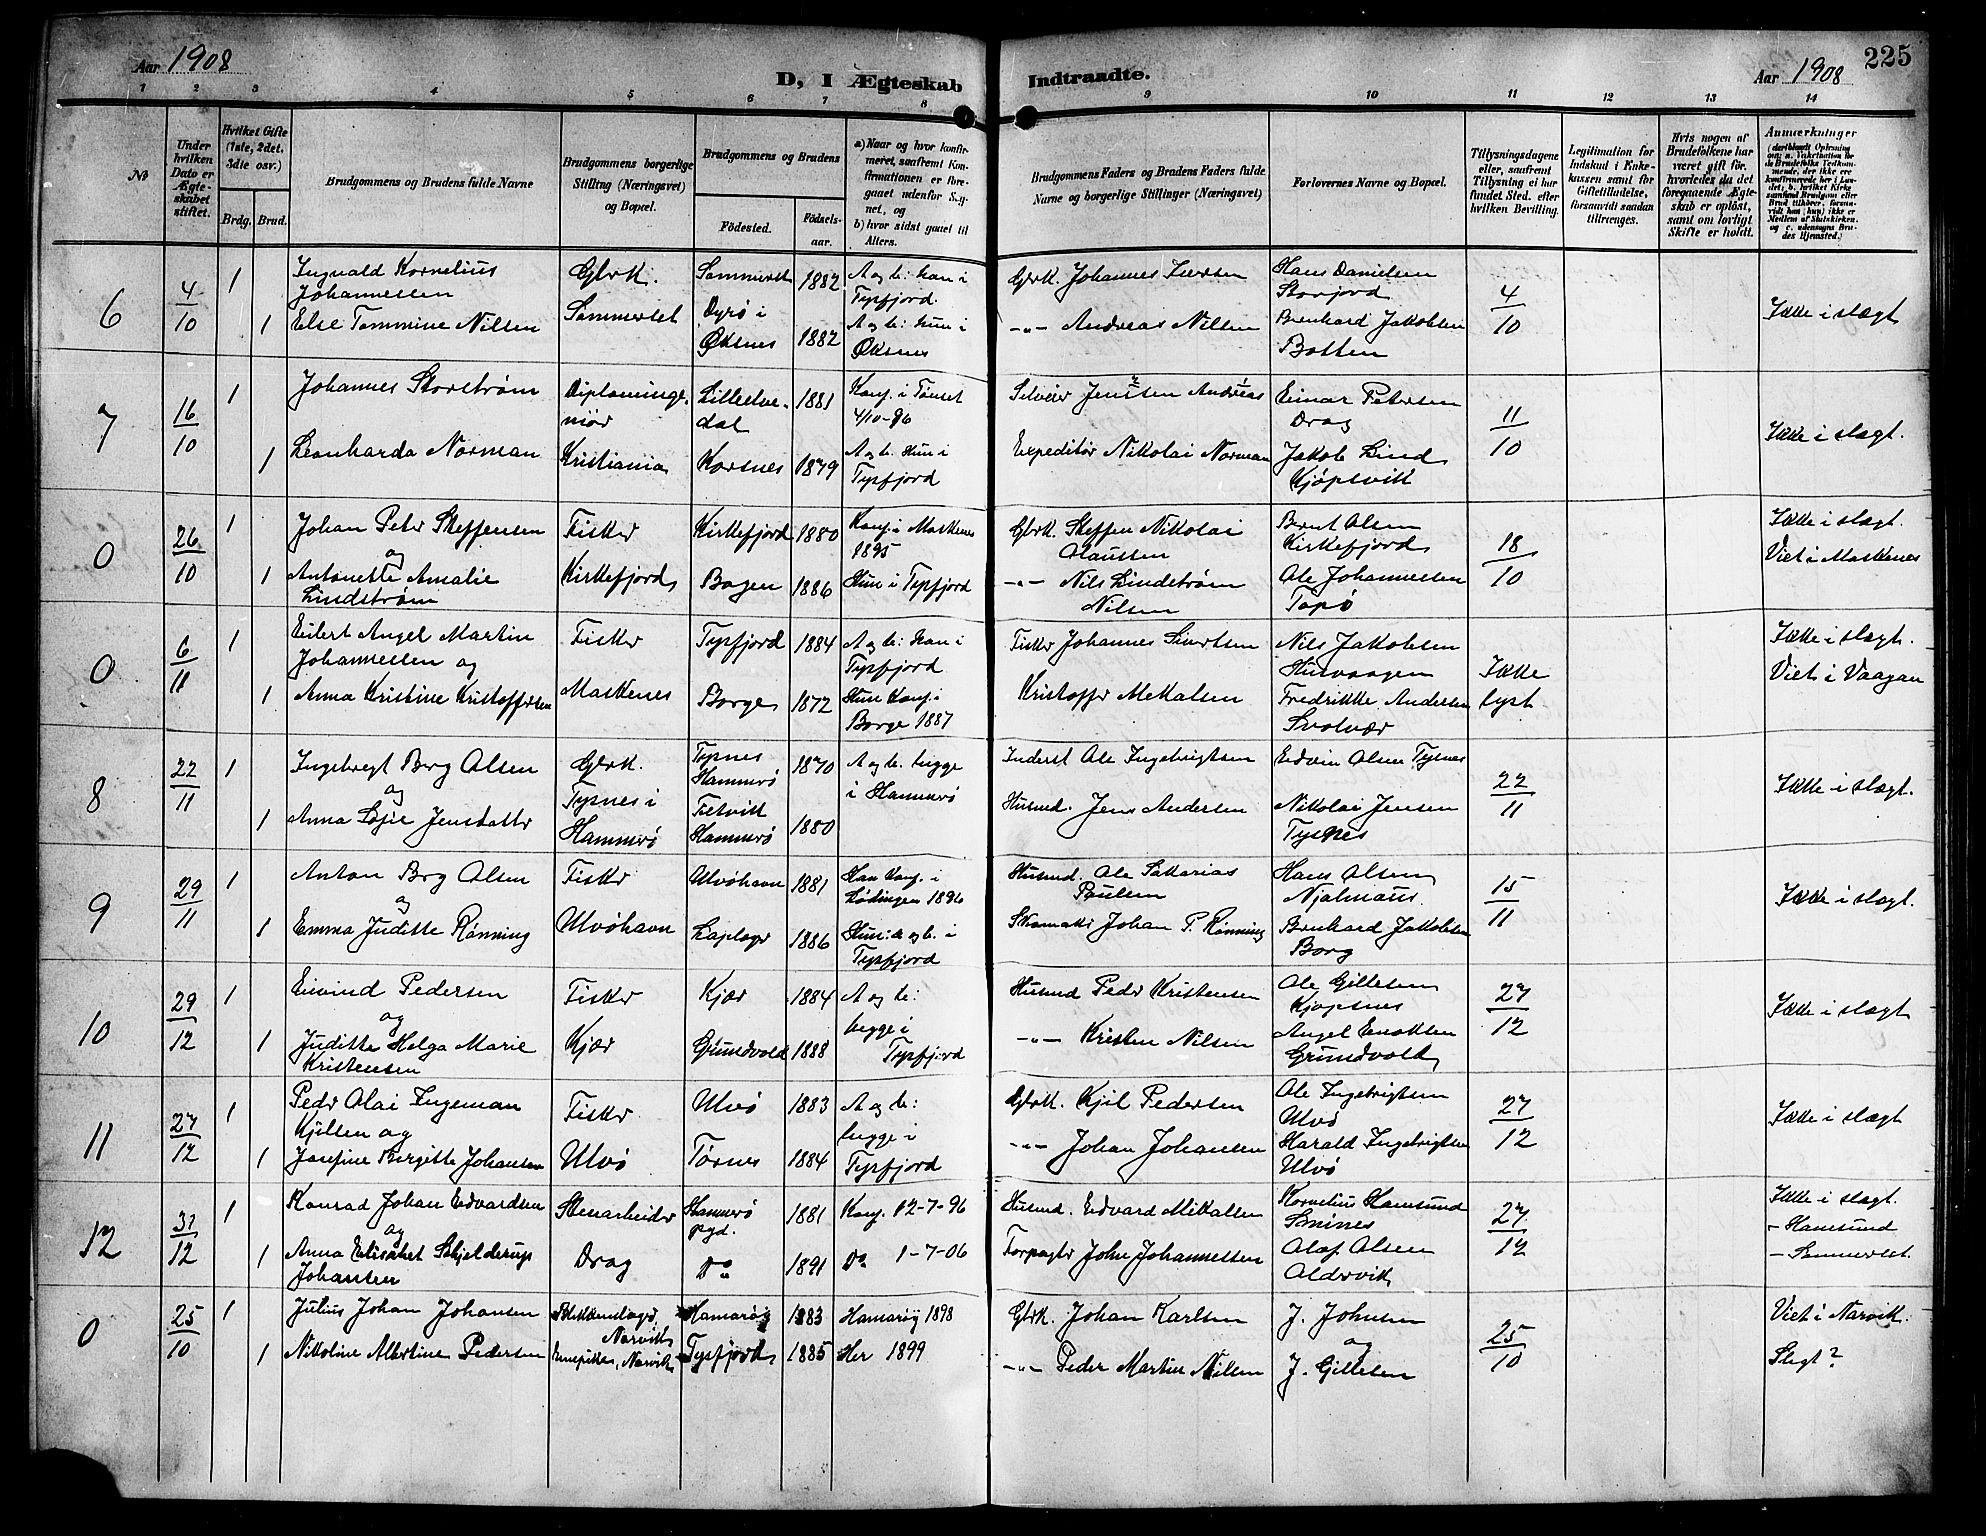 Aar 1908
D, I Ægteskab Indtraadte.
Aar 1908
225
1 2 3 4 5 6 7 8 9 10 11 12 13 14
No
Under hvilken Dato er Ægteskabet stiftet.
Hvilket Gifte (1ste, 2det, 3die osv.)
Brdg. Brud.
Brudgommens og Brudens fulde Navne
Brudgommens borgerlige Stilling (Næringsvei) og Bopæl.
Brudgommens og Brudens
Födested.
Födselsaar.
a) Naar og hvor konfirmeret, saafremt Konfirmationen er foregaaet udenfor Sognet, og
b) hvor sidst gaaet til Alters.
Brudgommens Faders og Brudens Faders fulde Navne og borgerlige Stillinger (Næringsvei)
Forlovernes Navne og Bopæl.
Tillysningsdagene eller, saafremt Tillysning ei har fundet Sted, efter hvilken Bevilling.
Legitimation for Indskud i Enkekassen samt for Giftetilladelse, forsaavidt saadan tiltrænges.
Hvis nogen af Brudefolkene har været gift för, hvorledes da det foregaaende Ægteskab er oplöst, samt om lovligt Skifte er holdt.
Anmærkninger
6
4/10
1
Ingvald Kornelius
Johannessen
1 Else Tommine Nilsen
Gbrk.
Sommerset
Sommerset 1882
Dyrø i
Øksnes 1882
A og b: han i
Tysfjord.
A og b: hun i
Øksnes
Gbrk. Johannes Iversen
-"- Andreas Nilsen
Hans Danielsen
Storjord
Bernhard Jakobsen
Botten
4/10
Ikke i slægt
7
16/10
1
Johannes Storstrøm
1 Leonharda Norman
Diplominge-
niør
Kristiania
Lilleelve-
dal 1881
Korsnes 1879
Konf. i Tønset
4/10-96
A og b. Hun i
Tysfjord
Selveier Jenssen Andreas
Expeditør Nikolai Norman
Einar Petersen
Drag
Jakob Lind
Kjøpsvik
11/10
Ikke i slægt.
0
26/10
1
Johan Peter Steffensen
og
1 Antonette Amalie
Lindstrøm
Fisker
Kirkefjord
Kirkefjord 1880
Bogen 1886
Konf. i Moskenes
1895
Hun i Tysfjord
Gbrk. Steffen Nikolai
Olaussen
-"- Nils Lindstrøm
Nilsen
Bernt Olsen
Kirkefjord
Ole Johannessen
Topø
18/10
Ikke i slægt.
Viet i Moskenes
0
6/11
1
Eilert Angel Martin
Johannessen og
1 Anna Kristine Kristoffersen
Fisker
Moskenes
Tysfjord 1884
Borge 1872
A og b: Han i
Tysfjord
Hun konf. i
Borge 1887
Fisker Johannes Sivertsen
Kristoffer Mekalsen
Nils Jakobsen
Fredrikke Andersen
Svolvær
Ikke
lyst
Ikke i slægt.
Viet i Vaagan
8
22/11
1
Ingebregt Berg Olsen
og
1 Anna Sofie Jensdatter
Gbrk.
Tysnes i
Hammerø
Tysnes
Hammerø 1870
Tetvik
Hammerø 1880
A og b. begge
i Hammerø
Inderst Ole Ingebrigtsen
Husmd. Jens Andersen
Edvin Olsen Tysnes
Nikolai Jensen
Tysnes
22/11
Ikke i slægt.
9
29/11
1
Anton Berg Olsen
og
1 Emma Juditte Rønning
Fisker
Ulvøhavn
Ulvøhavn 1881
1886
Han konf. i
Lødingen 1896
Hun: a og b. i
Tysfjord
Husmd. Ole Sakarias
Paulsen
Skomaker Johan P. Rønning
Hans Olsen
Bernhard Jakobsen
Borg
15/11
Ikke i slægt.
10
29/12
1
Eivind Pedersen
og
1 Juditte Helga Marie
Kristensen
Fisker
Kjær
Kjær 1884
Grundvold 1888
A og b:
begge i
Tysfjord
Husmd Peder Kristensen
-"- Kristen Nilsen
Ole Gillesen
Kjøpsnes
Angel Enoksen
Grundvold
27/12
Ikke i slægt
11
27/12
1
Peder Olai Ingeman
Kjilsen og
1 Josefine Bergitte Johansen
Fisker
Ulvø
Ulvø 1883
Tørnes 1884
A og b:
begge i
Tysfjord
Gbrk. Kjil Pedersen
-"- Johan Johansen
Ole Ingebrigtsen
Ulvø
Harald Ingebrigtsen
Ulvø
27/12
Ikke i slægt
12
31/12
1
Konrad Johan Edvardsen
og
1 Anna Elisabet Skjelderup
Johansen
Stenarbeider
Drag
Hammerø
pgd. 1881
Do 1891
Konf. 12-7-96
Do 1-7-06
Husmd. Edvard Mikalsen
Forpagter John Johannessen
Kornelius Hamsund
Smines
Olaf Olsen
Aldervik
27/12
Ikke i slægt.
- Hamsund
- Sommerset
0
25/10
1
Julius Johan Johansen
1 Nikoline Albertine Pedersen
Blikkenslager,
Narvik
Narvik
Hamarøy 1883
Tysfjord 1885
Hamarøy 1898
Her 1899
Gbrk. Johan Karlsen
-"- Peder Martin Nilsen
J. Johnsen
og
J. Gillesen
25/10
Viet i Narvik.
Slegt?